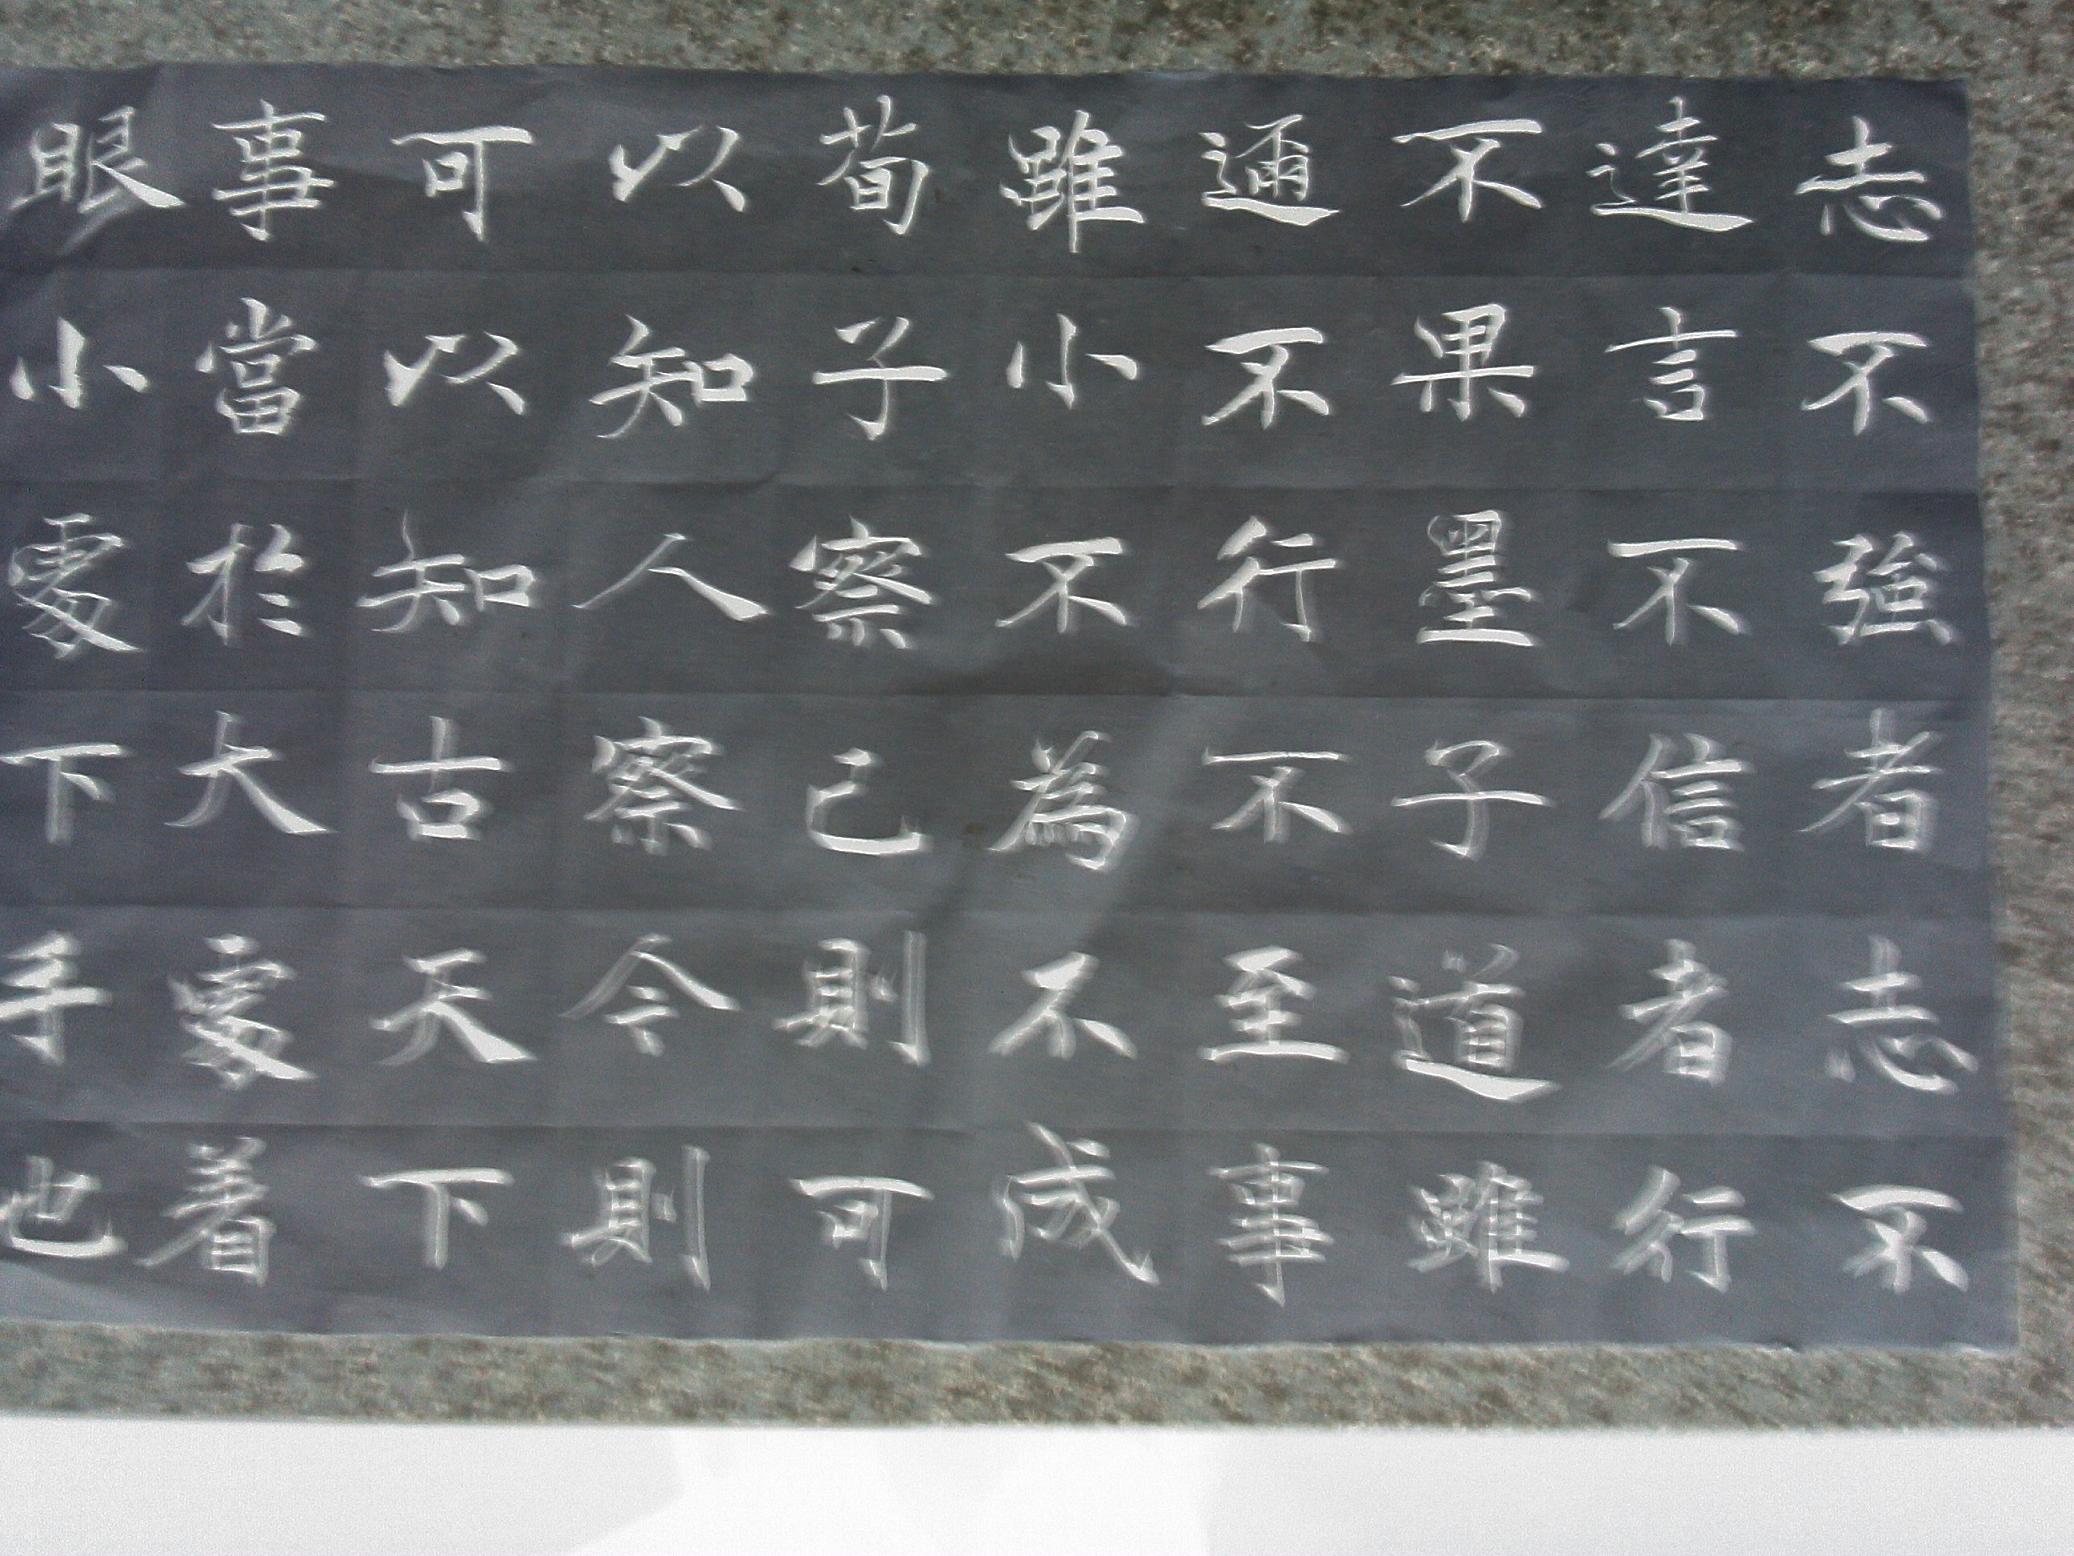 志不強者志不
達言不信者行
不果墨子道雖
邇不行不至事
雖小不為不成
荀子察己則可
以知人察今則
可以知古天下
事當於大處着
眼小處下手也